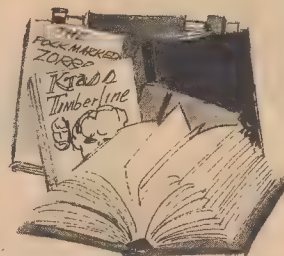 THE
POCKMARKED
ZORRO
KTADD
Timberline